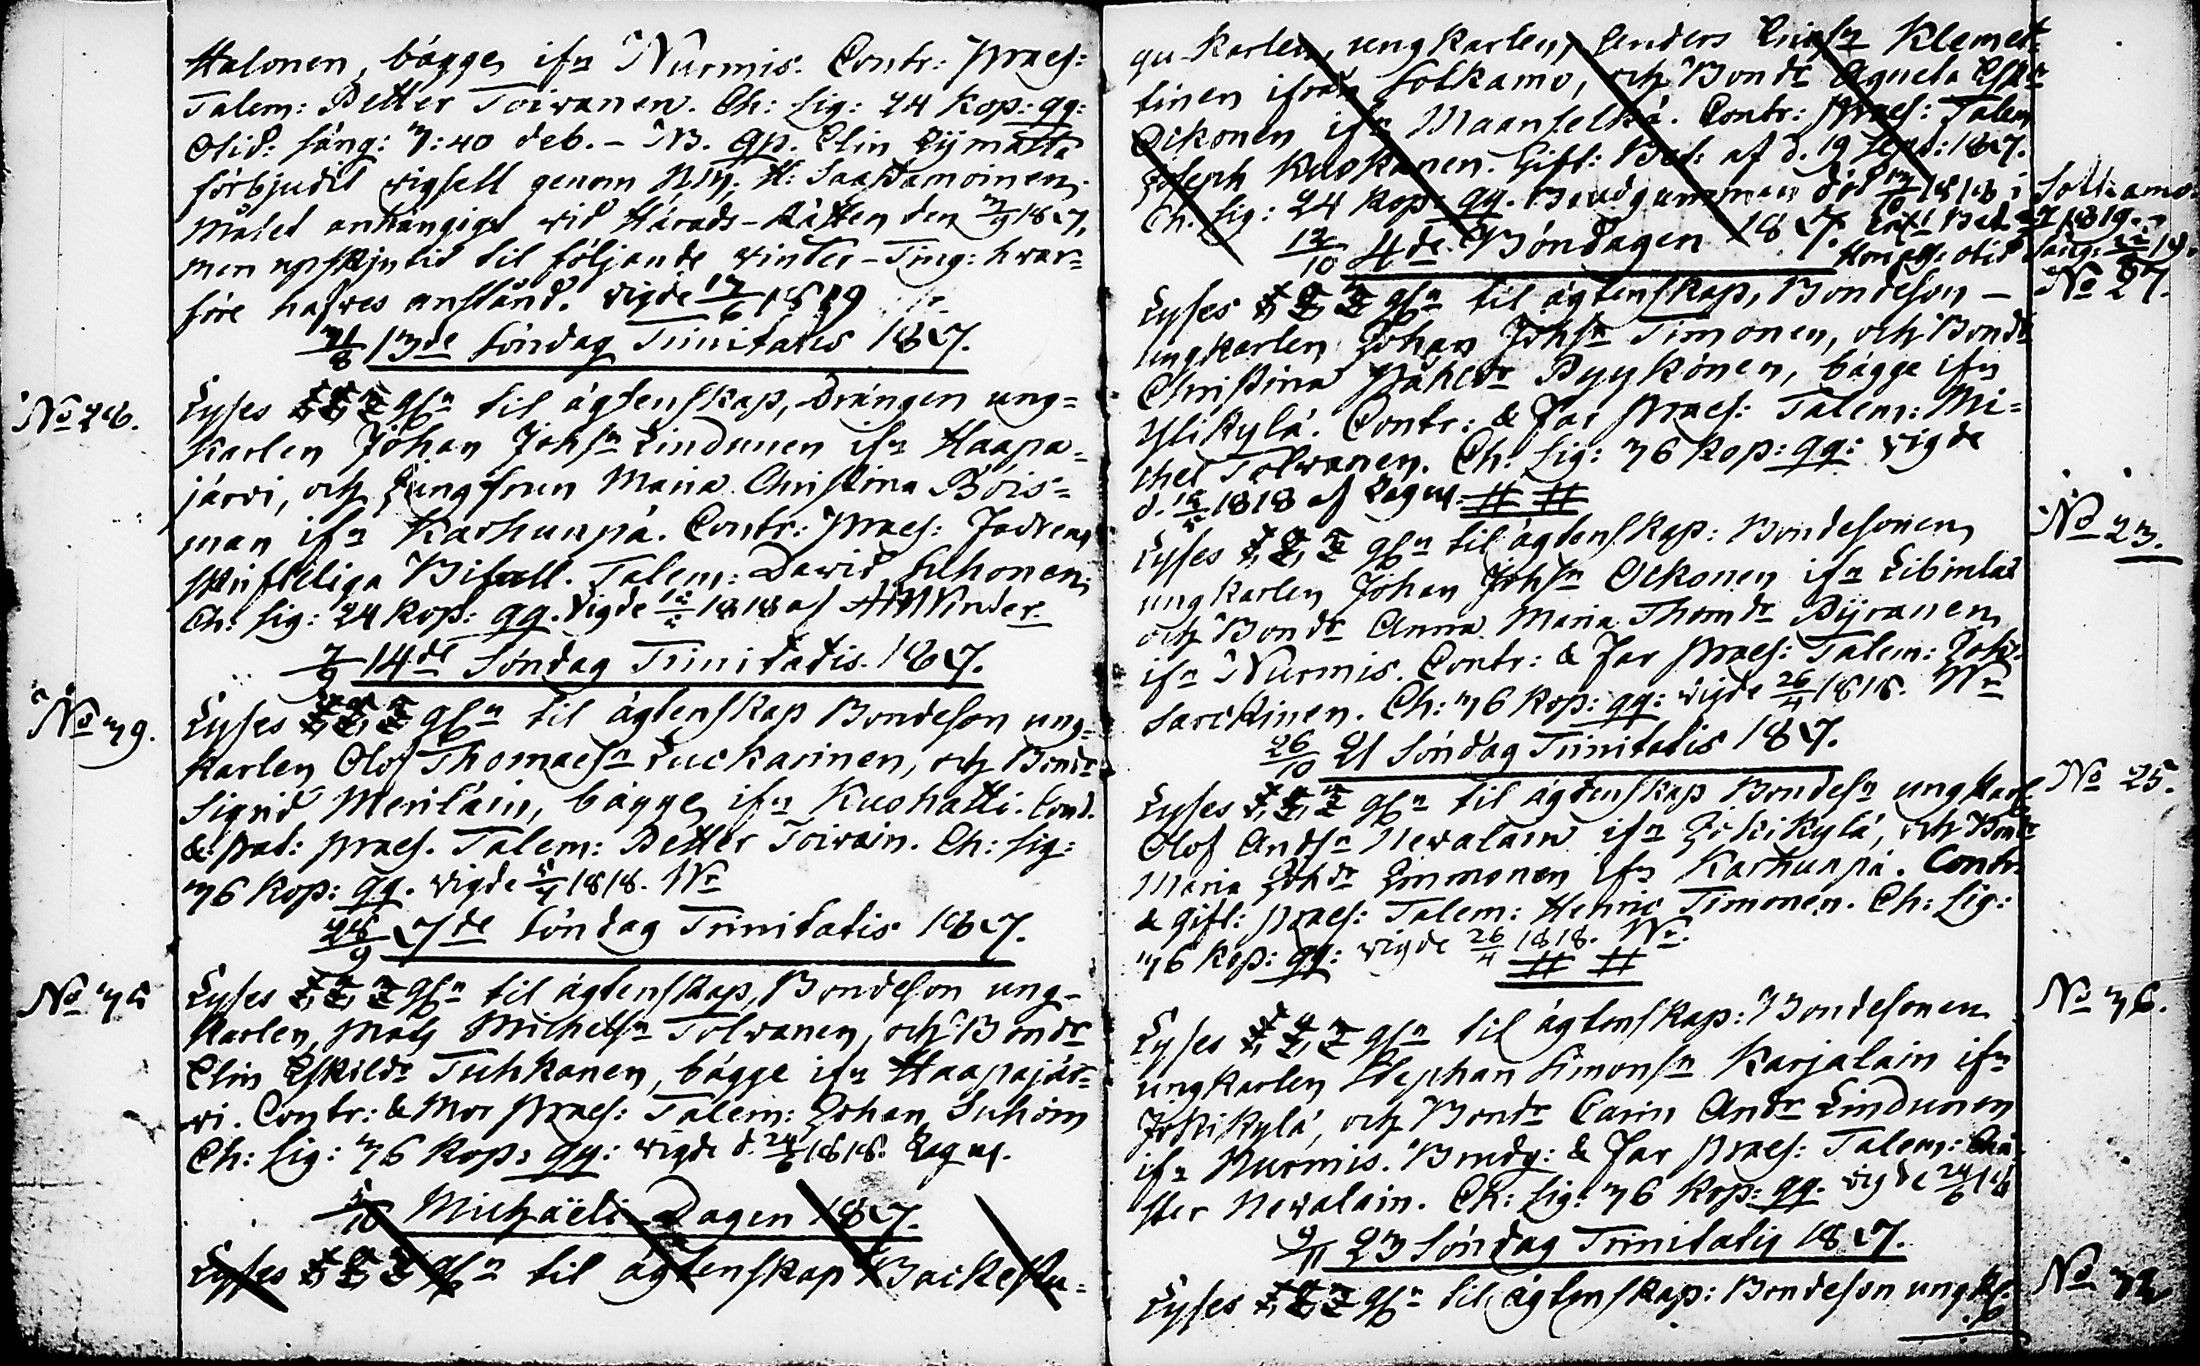 Halonen, bägge ifn Nurmis. Contr: praes:
Talem: Petter Toiwanen. Ch: sig: 24 kop: gg:
Olid: säng: 3:40 deb. – NB. gp. Elin
förbjudit wigsell genom H: Saastamoinen,
målet anhängigt wid Härads-Rätten den 1817,
men upskjutit til följande winter-Ting: hwar=
före hafwes anstånd. Wigde 1819
31/8 13de Söndag Trinitatis 1817.
No 28. Lyses gfn til ägtenskap, Drängen ung=
karlen Johan Johsn Lindunen ifn Haapa=
järvi, och Jungfrun Maria Christina Böis=
man ifn Karhunpä. Contr: praes: Fadrens
skriftteliga Bifall. Talem: David Silhonen;
Ch: sig: 24 kop: gg. Vigde 1818 af
7/9 14de Söndag Trinitatis. 1817.
No 39. Lyses gfn til ägtenskap Bondeson ung=
karlen Olof Thomaesn Luckarinen, och Bondr
Sigrid Meriläin, bägge ifn Kuohatti. Cont.
& pat: praes. Talem: Petter Toivain. Ch: sig:
36 kop: gg. Vigde 1818. Wr
28/9 17de Söndag Trinitatis 1817.
No Lyses gfn til ägtenskap, Bondeson ung-
karlen, Mats Michelsn Tolvanen, och Bondr
Elin Eskildr Tuhkanen, bägge ifn Haapajär=
vi. Contr: & Mor praes: Talem: Johan
Ch: sig: 36 kop: gg: Vigde d. 24/6 1818. Lagus.
5/10 Michaëli-Dagen 1817.
Lyses gfn til ägtenskap Backestu=
gu-karlen, ungkarlen, Anders Ericsn Klemet=
tinen ifrån Sotkamo, och Bondr Agneta
Ockonen ifn Maanselkä. Contr: praes: Talem
Joseph Kaskanen. Gift: Bet: af d. 19 Sept: 1817.
Ch. sig: 24 kop: gg. Brudgumman död 1818 i Sotkamo
12/10 4de Böndagen 1817.
No 27. Lyses gfn til ägtenskap, Bondeson –
ungkarlen Johan Johsn Timonen, och Bondr
Christina Påhldr Pyykönen, bägge ifn
Ylikylä. Contr: & Far praes: Talem: Mi=
chel Tolvanen. Ch: sig: 36 kop: gg: Vigde
d. 1818 af Lagus. # #
No 23. Lyses gfn til ägtenskap: Bondesonen
ungkarlen Johan Johsn Ockonen ifn
och Bondr Anna Maria Thomdr Pyranen,
ifn Nurmis. Contr: & Far praes: Talem: Joh:
Sarckinen. Ch: 36 kop: gg: Vigde 26/4 1818. Wr
26/10 21 Söndag Trinitatis 1817.
No 25. Lyses gfn til ägtenskap Bondesn ungkarl
Olof Andsn Nevalain ifn Jokikylä, och Bondr
Maria Johdr Timonen ifn Karhunpä. Contr:
& gift: praes: Talem: Henric Timonen. Ch: sig:
36 kop: gg: Vigde 26/4 1818. Wr.
# #
No 36. Lyses gfn til ägtenskap: Bondesonen
ungkarlen Stephan Simonsn Karjalain ifn
Jokikylä, och Bondr Carin Andr Lindunen
ifn Nurmis. Brudg: & Far praes: Talem: Chri
ster Nevalain. Ch: sig: 36 kop: gg. Vigde 24/6 18
9/11 23 Söndag Trinitatis 1817.
No 32 Lyses gfn til ägtenskap: Bondeson ungk: